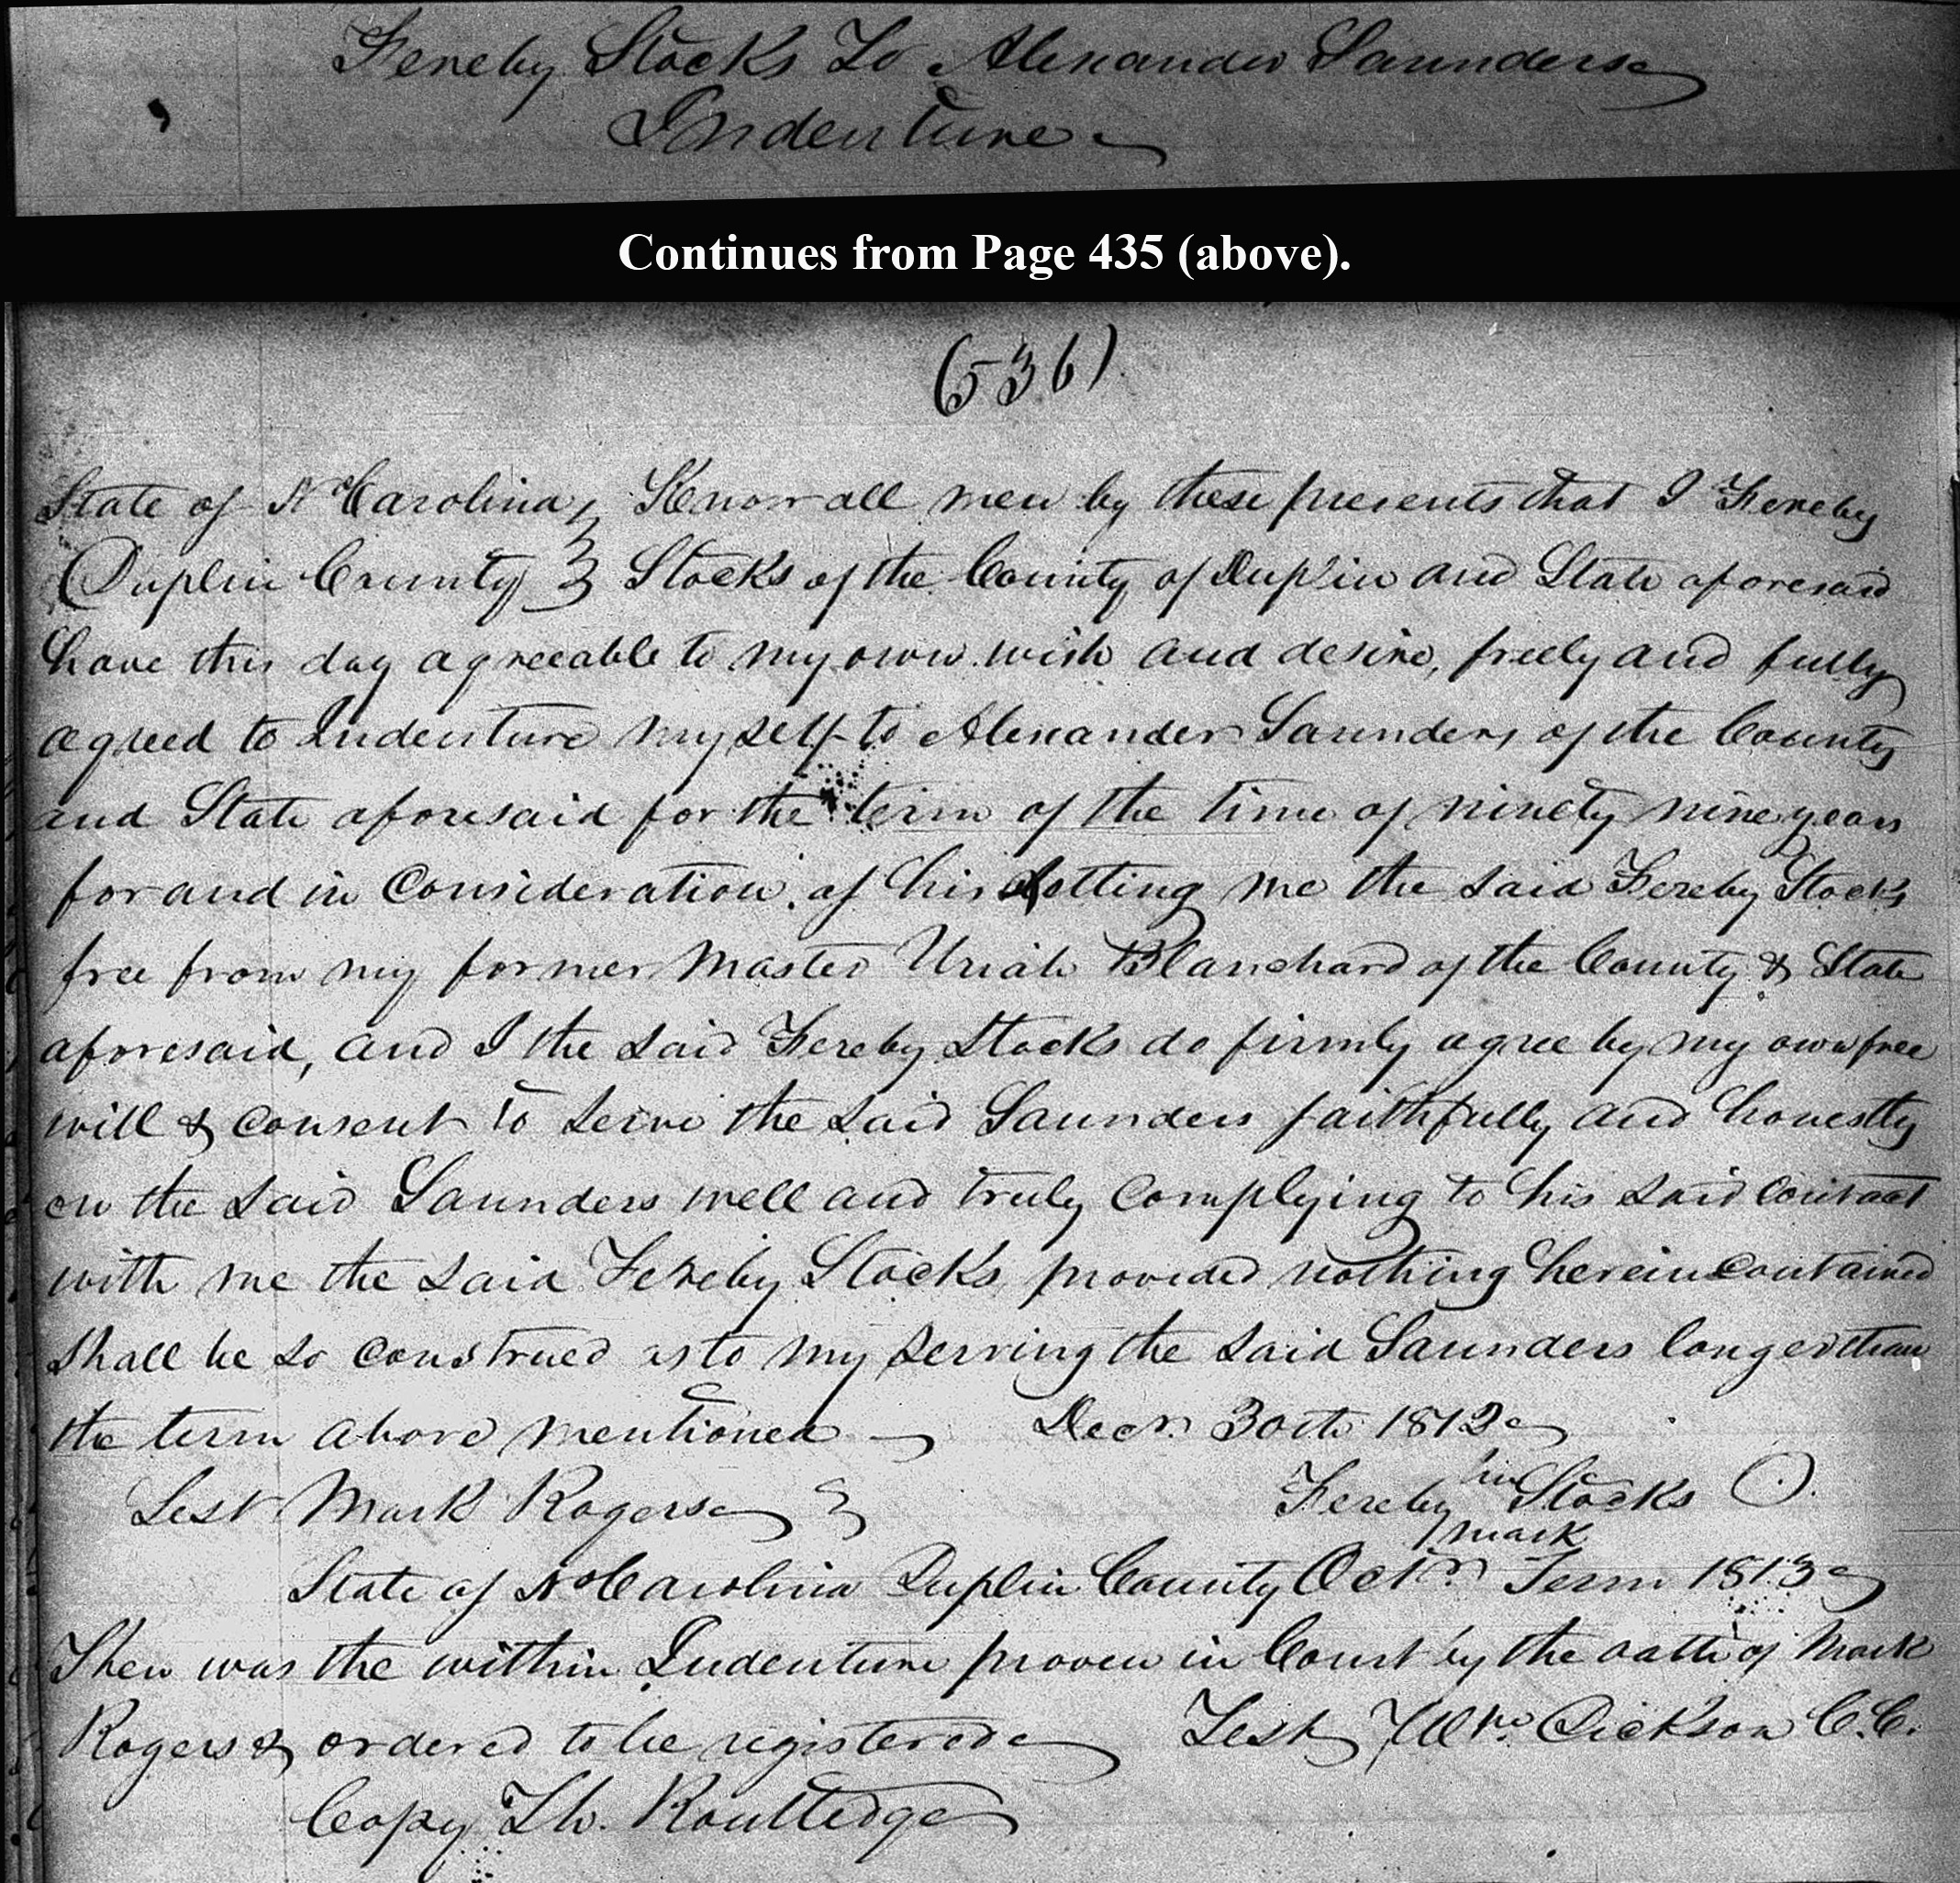 Fereby Stocks To Alexander Saunders
Indenture
Continues from Page 435 (above).
(536)
State of No Carolina } Know all men by these presents that I Fereby
Duplin County } Stocks of the County of Duplin and State aforesaid
have this day agreeable to my own wish and desire, freely and fully
agreed to Indenture myself to Alexander Saunders of the County
and State aforesaid for the term of the time of ninety nine years
for and in Consideration of his Setting me the said Fereby Stocks
free from my former Master Uriah Blanchard of the County & State
aforesaid, and I the said Fereby Stocks do firmly agree by my own free
will & consent to serve the said Saunders faithfully and honestly
on the said Saunders well and truly complying to his said contract
with me the said Fereby Stocks provided nothing herein contained
shall be so construed as to my serving the said Saunders longer than
the term above mentioned Decr. 30th 1812
Test Mark Rogers } Fereby his Stocks O.
mark
State of No Carolina Duplin County Octr. Term 1813
Then was the within Indenture proven in Court by the oath of Mark
Rogers & ordered to be registered Test Wm. Dickson C.C.
Copy Th. Routledge